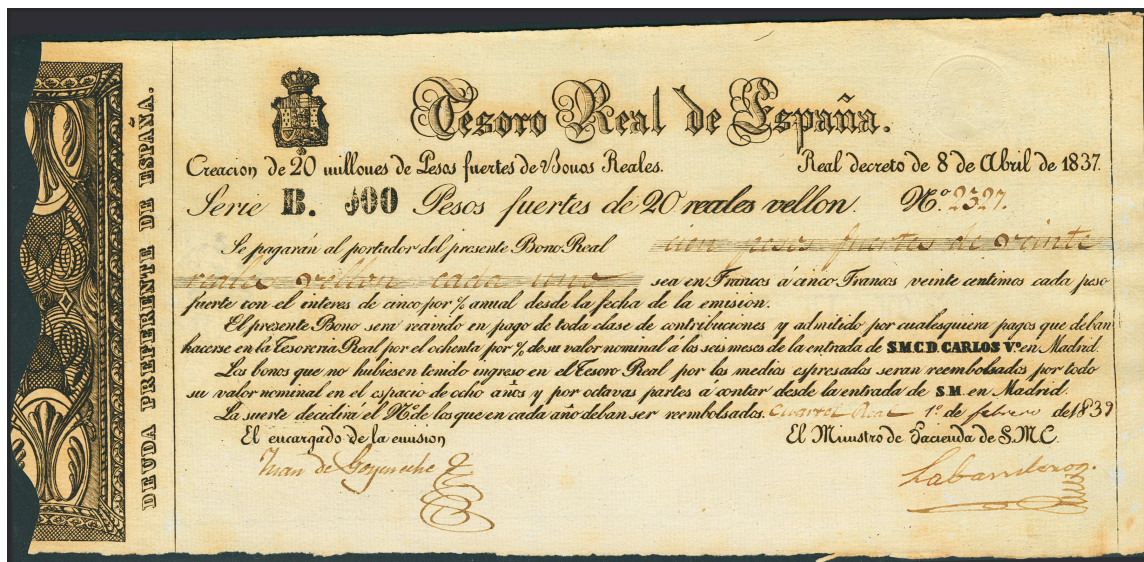 DEUDA PREFERENTE DE ESPAÑA.
Tesoro Real de España.
Creacion de 20 millones de Pesos fuertes de Bonos Reales. Real decreto de 8 de Abril de 1837.
Serie B. 100 Pesos fuertes de 20 reales vellon. No. 2327.
Se pagarán al portador del presente Bono Real cien pesos fuertes de veinte
reales vellon cada uno sea en Francos á cinco Francos veinte centimos cada peso
fuerte con el interes de cinco por % anual desde la fecha de la emision.
El presente Bono sera recivido en pago de toda clase de contribuciones y admitido por cualesquiera pagos que deban
hacerse en la Tesoreria Real por el ochenta por % de su valor nominal á los seis meses de la entrada de S.M.C.D. CARLOS V.º en Madrid.
Los bonos que no hubiesen tenido ingreso en el Tesoro Real por los medios espresados seran reembolsados por todo
su valor nominal en el espacio de ocho años y por octavas partes á contar desde la entrada de S.M. en Madrid.
La suerte decidira el No. de los que en cada año deban ser reembolsados. Cuartel Real 1º de febrero de 1839
El encargado de la emision El Ministro de Hacienda de S.M.C.
Juan de Goyeneche Labandero